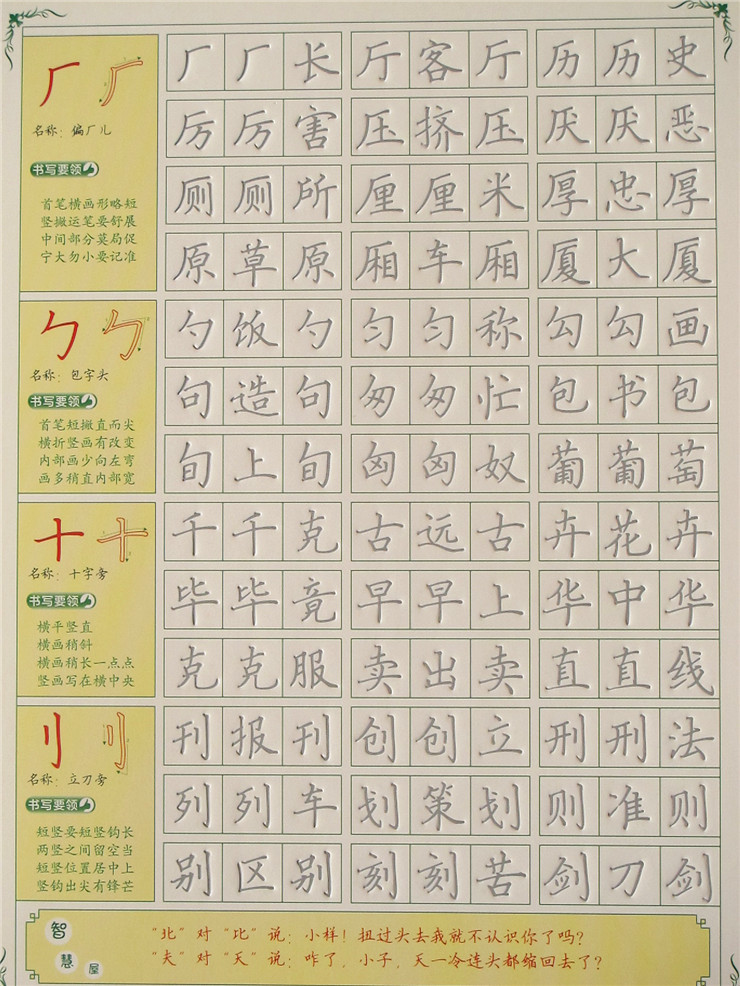 厂 厂 长 厅 客 厅 历 历 史
名称：偏厂儿
厉 厉 害 压 挤 压 厌 厌 恶
书写要领
首笔横画形略短
竖撇运笔要舒展
中间部分莫局促
宁大勿小要记准
厕 厕 所 厘 厘 米 厚 忠 厚
原 草 原 厢 车 厢 厦 大 厦
勹 勹
名称：包字头
书写要领
首笔短撇直而尖
横折竖画有改变
内部画少向左弯
画多稍直内部宽
勺 饭 勺 匀 匀 称 勾 勾 画
句 造 句 匆 匆 忙 包 书 包
旬 上 旬 匈 匈 奴 葡 葡 萄
十 十
名称：十字旁
书写要领
横平竖直
横画稍斜
横画稍长一点点
竖画写在横中央
千 千 克 古 远 古 卉 花 卉
毕 毕 竟 早 早 上 华 中 华
克 克 服 卖 出 卖 直 直 线
刂 刂
名称：立刀旁
书写要领
短竖要短竖钩长
两竖之间留空当
短竖位置居中上
竖钩出尖有锋芒
刊 报 刊 创 创 立 刑 刑 法
列 列 车 划 策 划 则 准 则
别 区 别 刻 刻 苦 剑 刀 剑
智慧屋
“北”对“比”说：小样！扭过头去我就不认识你了吗？
“夫”对“天”说：咋了，小子，天一冷连头都缩回去了？